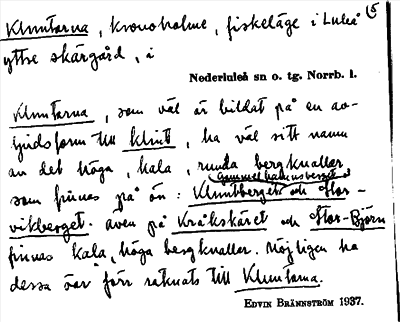 Kluntarna, kronoholme, fiskeläge i Luleå 5
yttre skärgård, i
Nederluleå sn o. tg. Norrb. l.
Kluntarna, som väl är bildat på en av-
ljudsform till klint, ha väl sitt namn
av det höga, kala, runda bergknallar
Gammelhamnsberget
som finnas på ön: Kluntberget och Stor-
vikberget. Även på Kråkskäret och Stor-Björn
finnas kala, höga bergknallar. Möjligen ha
dessa öar förr räknats till Kluntarna.
EDVIN BRÄNNSTRÖM 1937.